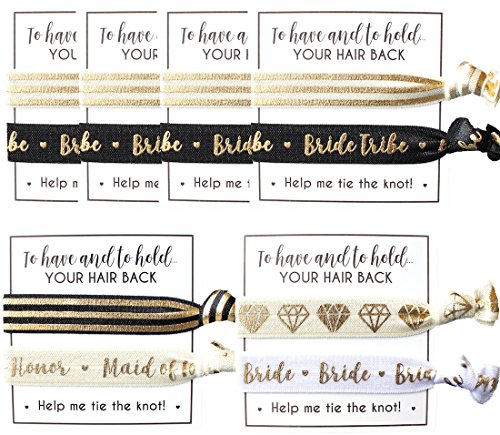 To have and
YOUR H
be ♥ Bri
♥ Help me
To have and
YOUR H
be ♥ Bri
♥ Help me
To have and
YOUR H
be ♥ Brid
♥ Help me
To have and to hold...
YOUR HAIR BACK
be ♥ Bride Tribe ♥
♥ Help me tie the knot! ♥
To have and to hold...
YOUR HAIR BACK
Honor ♥ Maid of
♥ Help me tie the knot! ♥
To have and to hold...
YOUR HAIR BACK
Bride ♥ Bride ♥ Brid
♥ Help me tie the knot! ♥